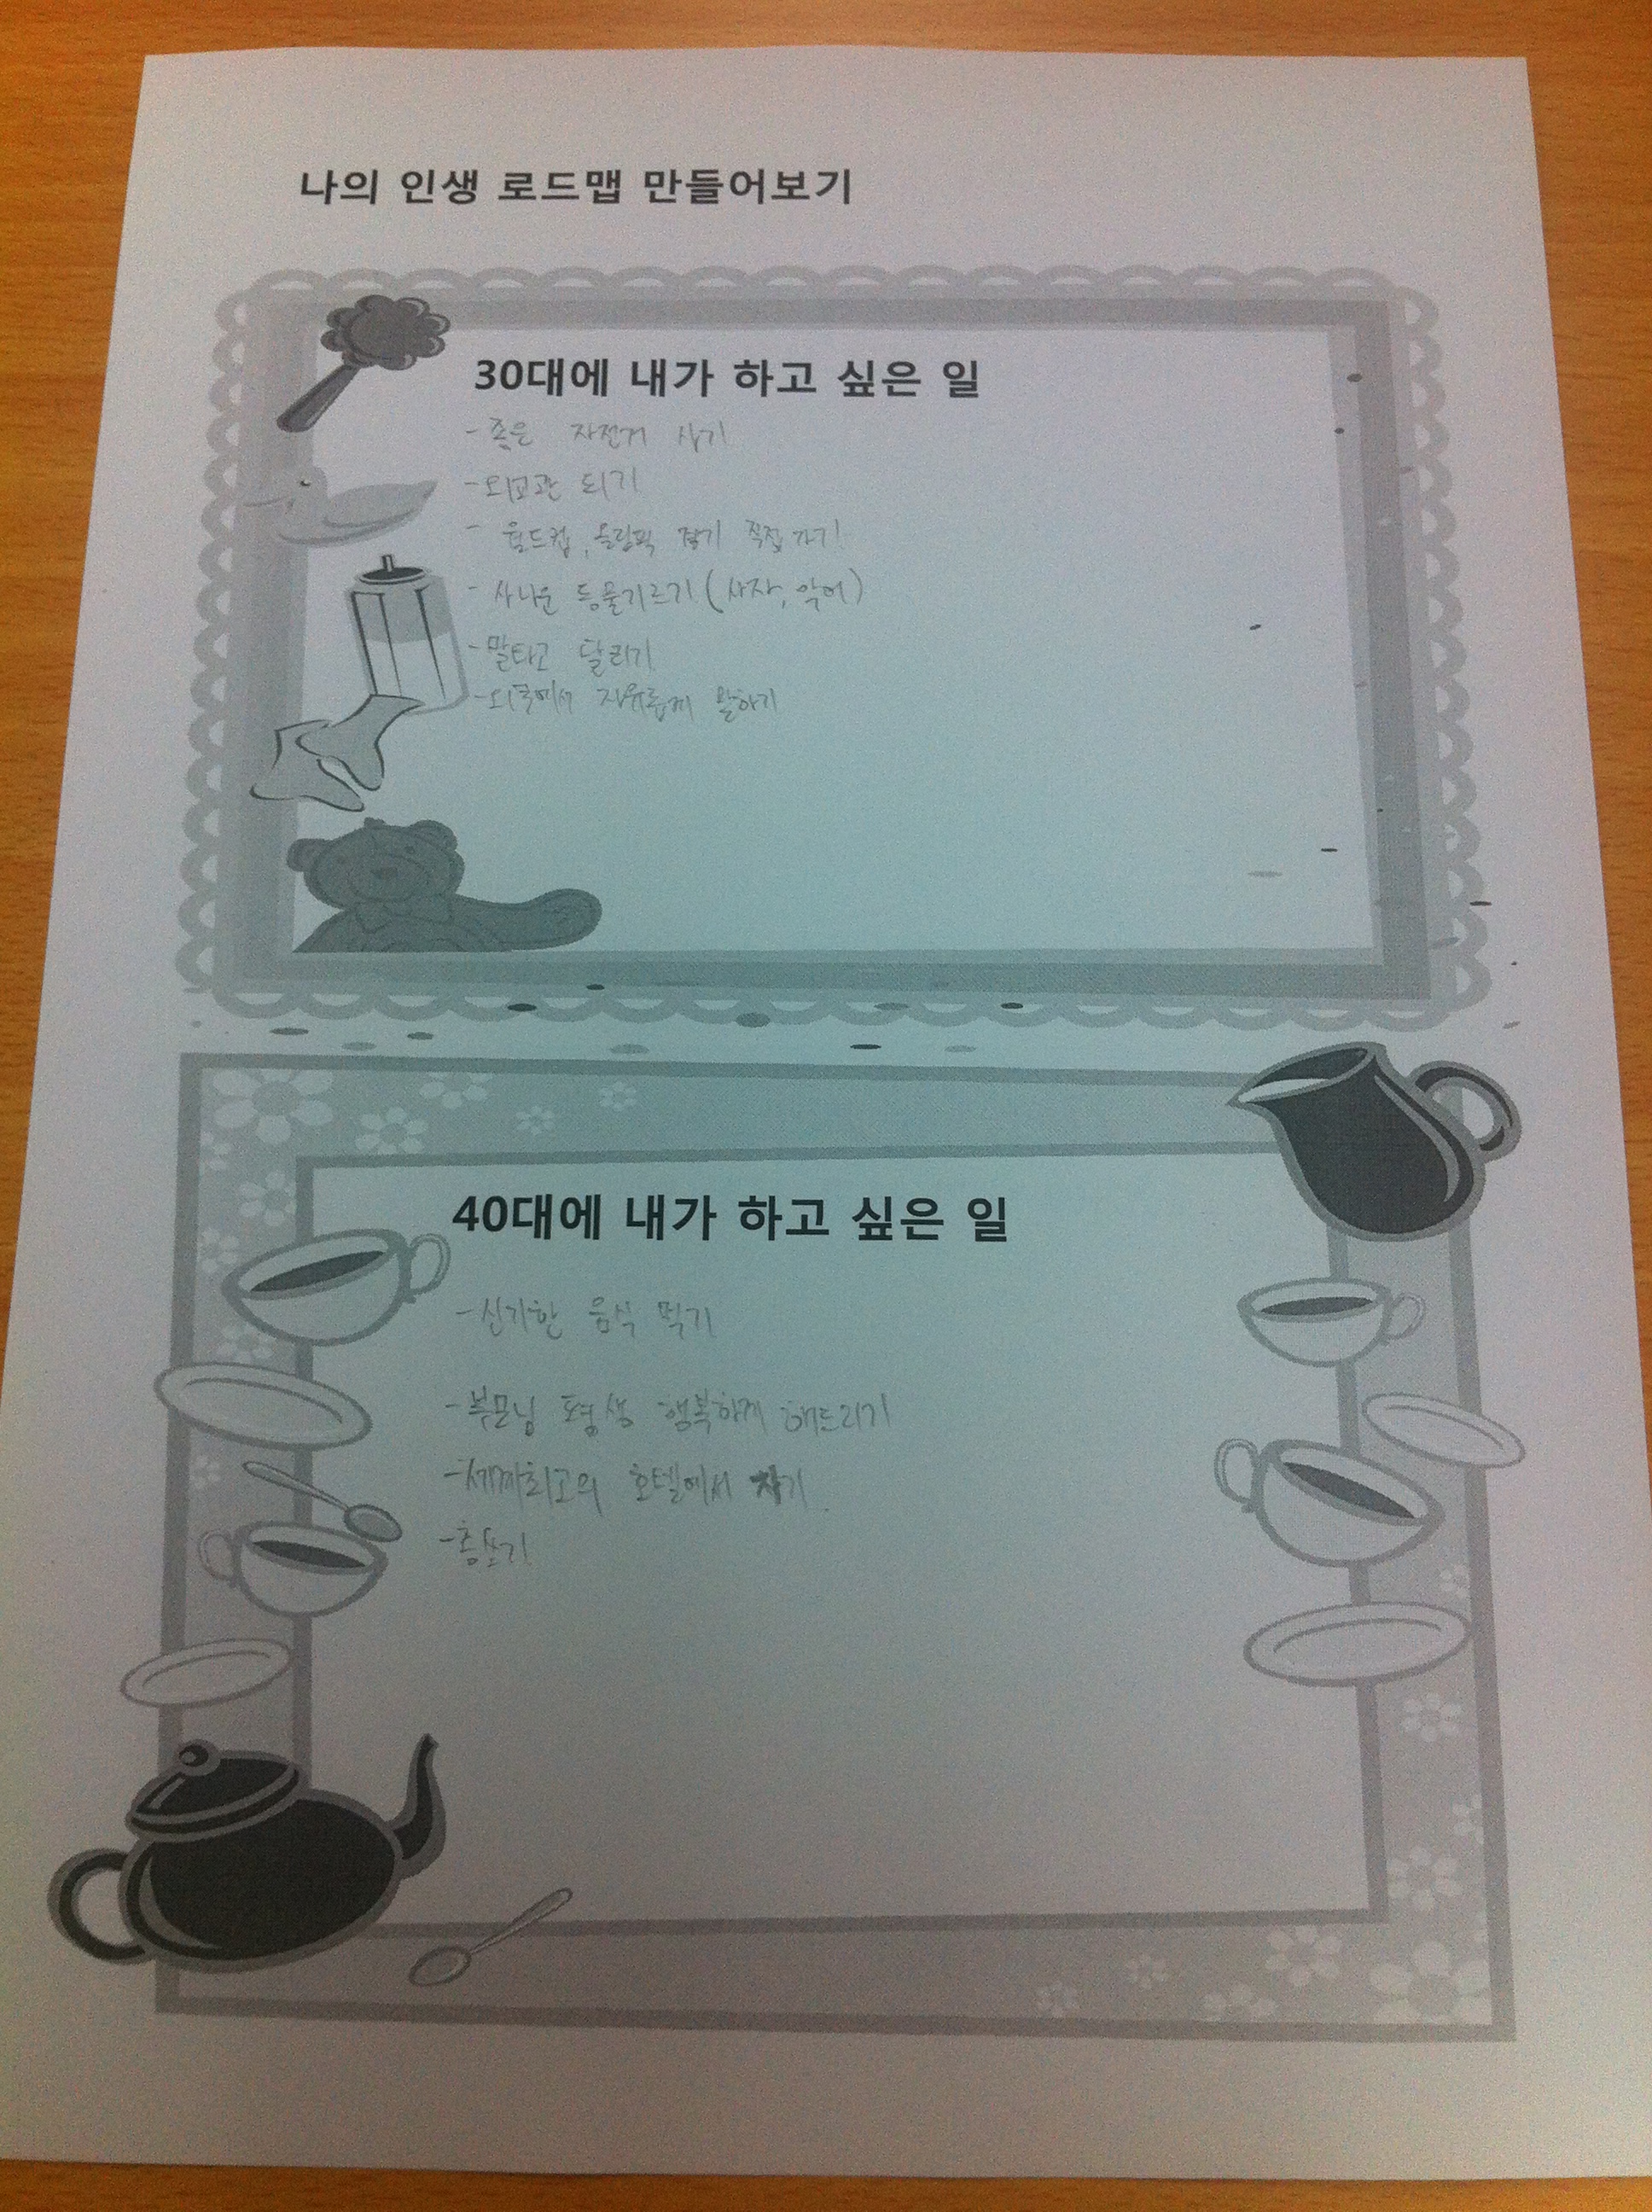 나의 인생 로드맵 만들어보기
30대에 내가 하고 싶은 일
- 좋은 자전거 사기
- 외교관 되기
- 월드컵, 올림픽 경기 직접 가기
- 사나운 동물기르기 (사자, 악어)
- 말타고 달리기
- 외국에서 자유롭게 말하기
40대에 내가 하고 싶은 일
- 신기한 음식 먹기
- 부모님 평생 행복하게 해드리기
- 세계최고의 호텔에서 자기
- 총쏘기